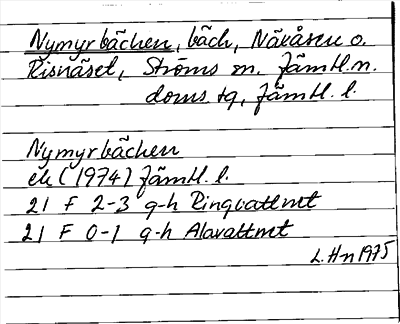 Nymyrbäcken, bäck, Näkåsen o.
Risnäset, Ströms sn. Jämtl. n.
doms. tg, Jämtl. l.
Nymyrbäcken
ek (1974) Jämtl. l.
21 F 2-3 g-h Ringvattnet
21 F 0-1 g-h Alavattnet
L. Hn 1975